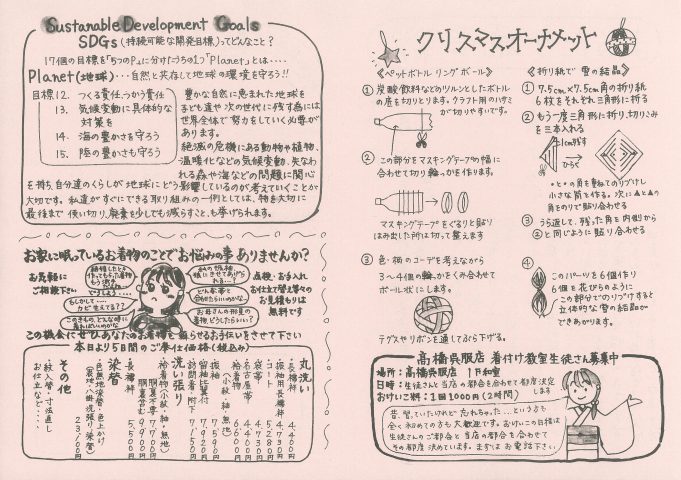 Sustanable Development Goals
SDGs(持続可能な開発目標)ってどんなこと?
17個の目標を「5つのP」に分けたうちの1つ「Planet」とは‥‥
Planet(地球)‥‥自然と共存して地球の環境を守ろう!!
目標12. つくる責任、つかう責任
13. 気候変動に具体的な
対策を
14. 海の豊かさを守ろう
15. 陸の豊かさも守ろう
豊かな自然に恵まれた地球を
子ども達や次の世代に残す為には
世界全体で努力をしていく必要が
あります。
絶滅の危機にある動物や植物、
温暖化などの気候変動、失なわ
れる森や海などの問題に関心
を持ち、自分達のくらしが地球にどう影響しているのか考えていくことが
大切です。私達がすぐにできる取り組みの一例としては、物を大切に
最後まで使い切り、廃棄を少しでも減らすこと、も挙げられます。
お家に眠っているお着物のことでお悩みの事ありませんか?
お気軽に
ご相談下さい
もしかして‥‥
カビ生えてる??
このきもの、どんな時に
着ればいいのかな
どんな帯と
合わせたらいいのかな。
お母さんの形見の
着物、どうしたらいい?
点検・お手入れ
お仕立て替え等での
お見積もりは
無料です
この機会にぜひあなたのお着物を蘇らせるお手伝いをさせて下さい
本日より5日間のご奉仕価格(税込み)
丸洗い
・長襦袢 4,400円
・振袖用長襦袢 4,730円
・コート 5,280円
・袋帯 4,580円
・名古屋帯
・袷着物
(小紋・袖・無地) 6,600円
・振袖 7,590円
・留袖比翼付 7,920円
・訪問着・附下 7,150円
洗い張り
・袷着物(小紋・紬・無地)
胴裏不要 7,700円
胴裏含む 9,900円
・長襦袢 5,500円
染替
・色無地染替・色上かけ
(表地・八掛洗張り、染替)
23,100円
その他
・紋入替・寸法直し
お仕立など‥‥
クリスマスオーナメット
《ペットボトル リングボール》
① 炭酸飲料などのツルンとしたボトル
の底を切りとります。クラフト用のハサミ
が切りやすいです。
② この部分をマスキングテープの幅に
合わせて切り輪っかを作ります。
マスキングテープをぐるりと貼り
はみ出した所は切って整えます
③ 色・柄のコーデを考えながら
3~4個の輪っかをくみ合わせて
ボール状にします。
テグスやリボンを通してぶら下げる。
《折り紙で 雪の結晶》
① 7.5cm×7.5cm角の折り紙
6枚をそれぞれ三角形に折る
② もう一度三角形に折り、切りこみ
を三本入れる
1cm残す
ひらく
・と・の角を重ねてのりづけし
小さな筒を作る。次に▲と▲の
角をのりで貼り合わせる
③ うら返して、残った角を内側から
②と同じように貼り合わせる
④ このパーツを6個作り
6個を花びらのように
この部分でのりづけすると
立体的な雪の結晶が
できあがります。
高橋呉服店 着付け教室生徒さん募集中
場所:高橋呉服店 1F和室
日時:生徒さんと当店の都合を合わせて都度決定
します
おけいこ料:1回1000円(2時間)
昔、習っていたけれど忘れちゃった‥‥という方も
全く初めての方も大歓迎です。おけいこの日程は
生徒さんのご都合と当店の都合を合わせて
その都度決めています。まずはお電話下さい